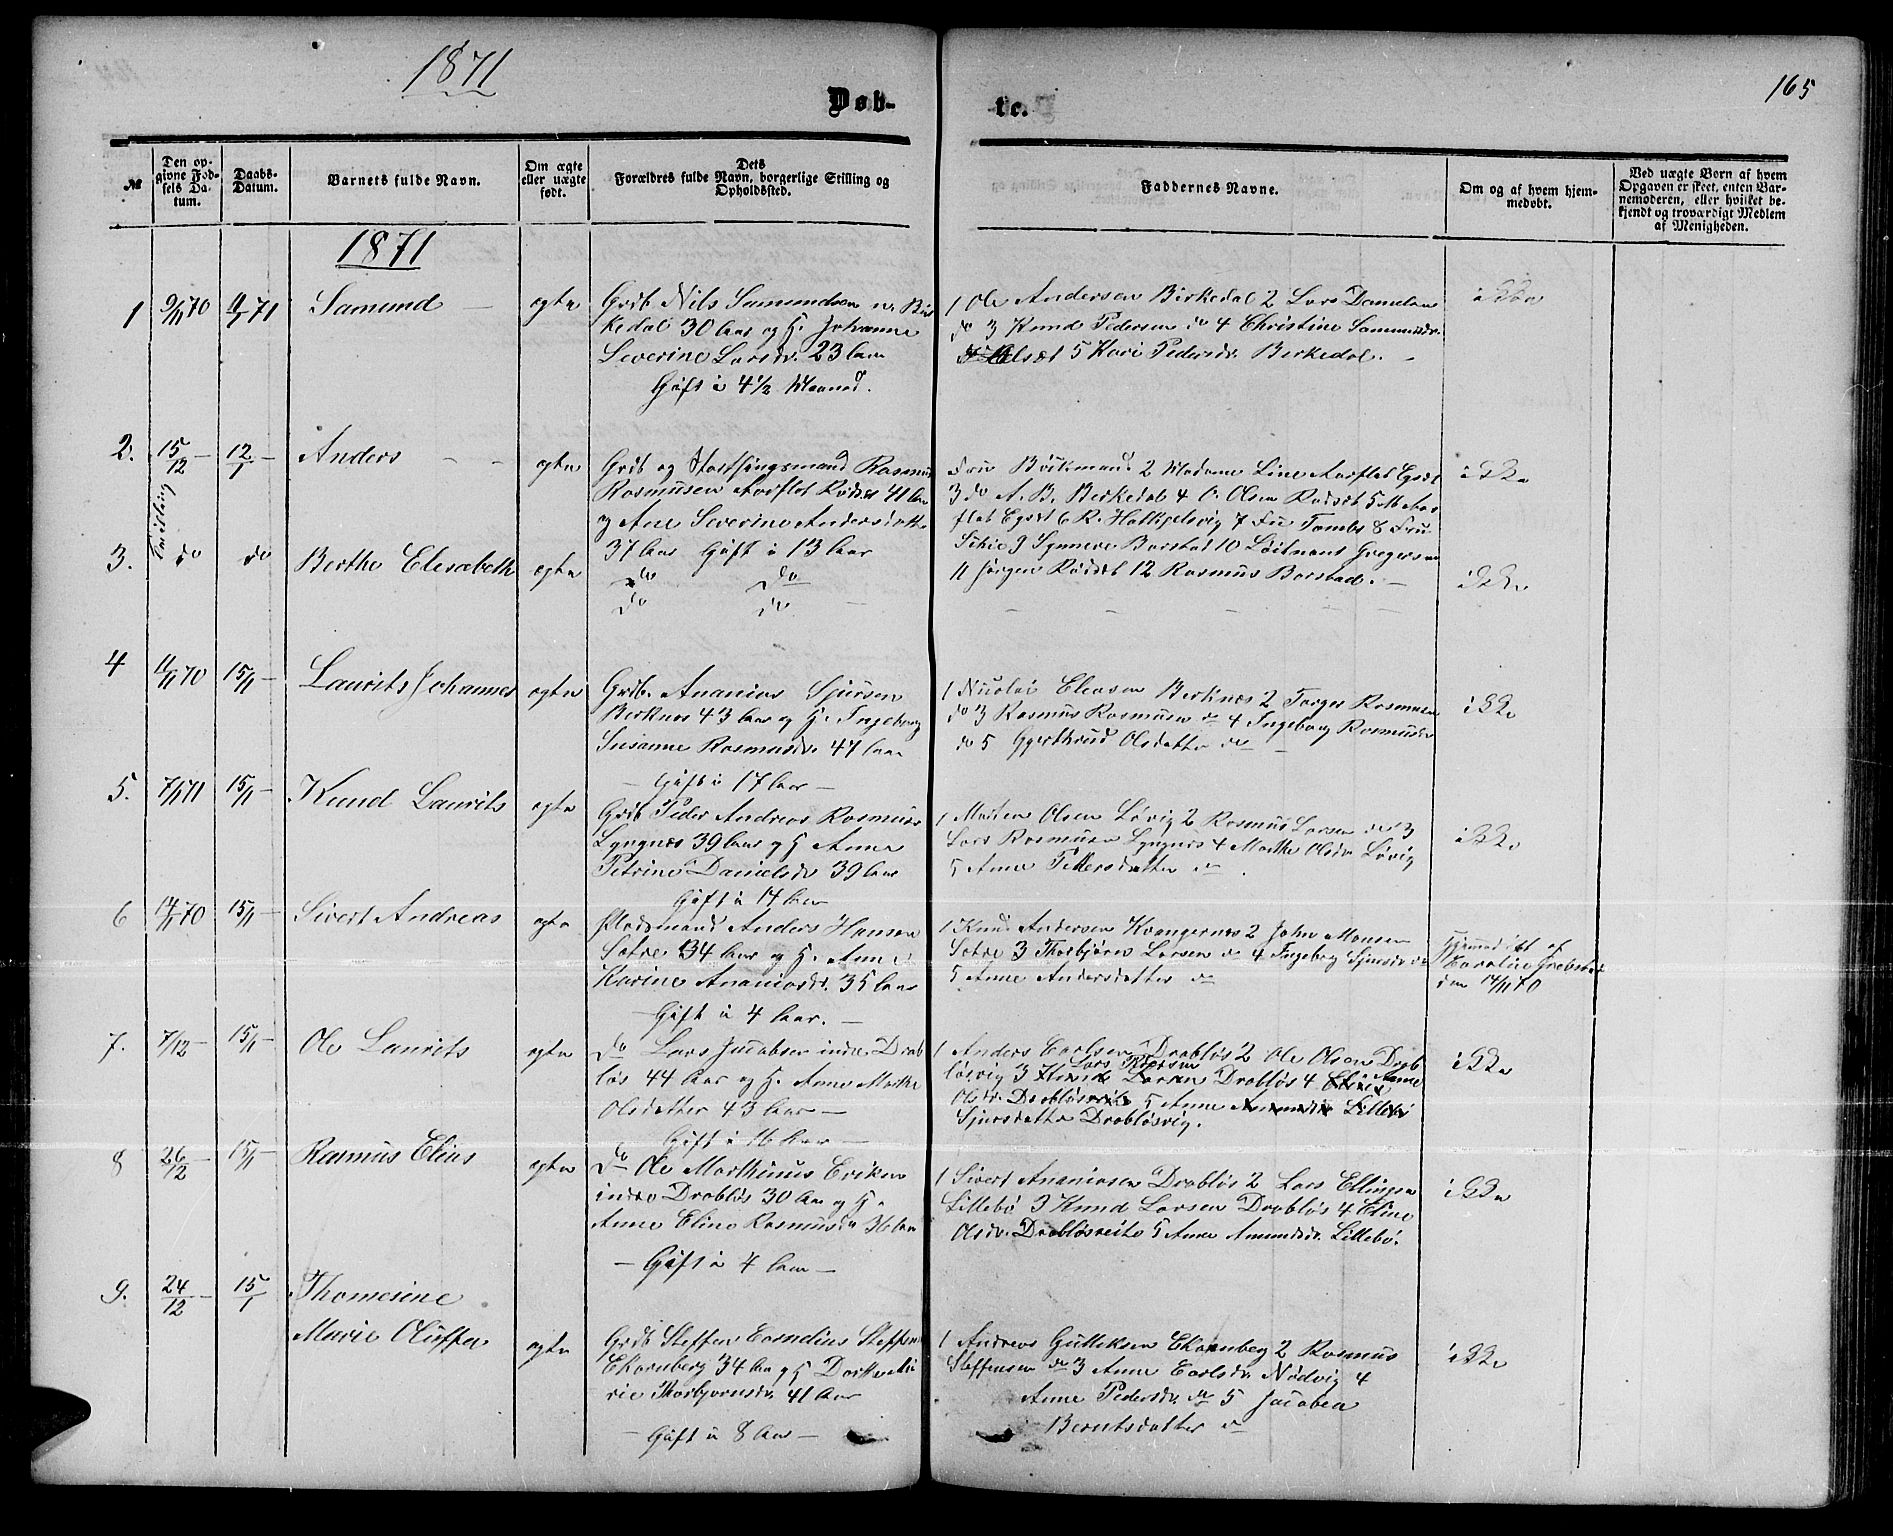 1871
Døb-
te.
165
№
Den op-
givne Fød-
sels Da-
tum.
Daabs-
Datum.
Barnets fulde Navn.
Om ægte
eller uægte
født.
Dets
Forældres fulde Navn, borgerlige Stilling og
Opholdssted.
Faddernes Navne.
Om og af hvem hjem-
medøbt.
Ved uægte Børn af hvem
Opgaven er skeet, enten Bar-
nemoderen, eller hvilket be-
kjendt og troværdigt Medlem
af Menigheden.
1871
1
9/11 70
1/1 71
Samund
ægte
Grdb. Nils Samundsen
kedal 30 Aar og H. Johanne
Severine Larsdr. 23 Aar
Gift i 4½ Maaned.
1 Ole Andersen Birkedal 2 Lars Danielsen
do 3 Knud Pedersen do 4 Christine Samundsdr.
5 Kari Pedersdr. Birkedal.
ikke
2.
15/12
12/1
Anders
ægte
Grdb og Storthingsmand Rasmus
Rasmusen Aarflot Rødset 41 Aar
og Ane Severine Andersdatter
37 Aar Gift i 13 Aar
Fru 2 Madame Line Aarflot Egset
3 do A. B. Birkedal 4 O. Olsen Rødset 5 M. Aar
flot Egset 6 R. Hatkjelsvig 7 Fru Tambs 8 Fru
9 Synneve Barstad 10 Løitnant Gregersen
11 Jørgen Rødset 12 Rasmus Barstad.
ikke
Tvilling
3.
do
do
Berthe Elisabeth
ægte
do do
do do
ikke
4
11/11 70
15/1
Laurits Johannes
ægte
Grdb. Ananias Sjursen
Berknes 43 Aar og H. Ingeborg
Susanne Rasmusdr. 47 Aar
Gift i 17 Aar
1 Nicolai Eliasen Berknæs 2 Torger Rasmusen
do 3 Rasmus Rasmusen do 4 Ingeborg Rasmusdr
do 5 Gjerthrud Olsdatter do
ikke
5.
7/1 71
15/1
Knud Laurits
ægte
Grdb Peder Andreas Rasmusen
Lyngnæs 39 Aar og H Anne
Petrine Danielsdr 39 Aar
Gift i 14 Aar
1 Morten Olsen Løvig 2 Rasmus Larsen do 3
Lars Rasmusen Lyngnes 4 Marthe Olsdr Løvig
5 Anne Pettersdatter do
ikke
6
14/11 70
15/1
Sivert Andreas
ægte
Pladsmand Anders Hansen
Sætre 34 Aar og H. Anne
Karine Ananiasdr. 35 Aar
Gift i 4 Aar.
1 Knud Andersen Kvangernes 2 John Monsen
Sætre 3 Thorbjørn Larsen do 4 Ingeborg Sjursdr do
5 Anne Andersdatter do
Hjemmedøbt af
Caroline Grebstad
den 14/11 70
7.
7/12
15/1
Ole Laurits
ægte
do Lars Jacobsen indre Drab
løs 44 Aar og H. Anne Marthe
Olsdatter 43 Aar
Gift i 16 Aar
1 Anders Carlsen Drabløs 2 Ole Olsen Drab
Lars
løsvig 3 Knud Larsen Drabløs 4 Eline Anne
Olsdr. Drabløsreite 5 Anne Amundsdr Lillebø
Sjursdatter Drabløsvig.
ikke
8
26/12
15/1
Rasmus Elias
ægte
do Ole Marthinus Eriksen
indre Drabløs 30 Aar og H.
Anne Eline Rasmusdr 36 Aar
Gift i 4 Aar
1 Sivert Ananiasen Drabløs 2 Lars Ellingsen
Lillebø 3 Knud Larsen Drabløs 4 Eline
Olsdr. Drabløsreite 5 Anne Amundsdr. Lillebø.
ikke
9.
24/12
15/1
Thomesine
Marie Oluffa
ægte
Grdb Steffen Cornelius Steffens
Ekornberg 34 Aar og H Dorthe Ma
rie Thorbjørnsdr. 41 Aar
Gift i 8 Aar
1 Andreas Gulliksen Ekornberg 2 Rasmus
Steffensen do 3 Anne Carlsdr. Nødvig 4
Anne Pedersdr. do 5 Jacobea
Berntsdatter do
ikke